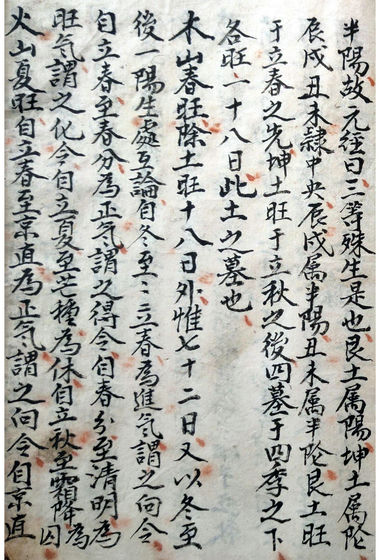 半陽故元經曰三等殊生是也艮土属陽坤土属陰
辰戌丑未隷中央辰戌属半陽丑未属半陰艮土旺
于立春之先坤土旺于立秋之後四墓于四季之下
各旺一十八日此土之墓也
木山春旺除土旺十八日外惟七十二日又以冬至
後一陽生處互論自冬至〻立春為進气謂之向令
自立春至春分為正气謂之得令自春分至清明為
旺气謂之化令自立夏至芒種為休自立秋至霜降為囚
火山夏旺自立春至京直為正气謂之向令自京直